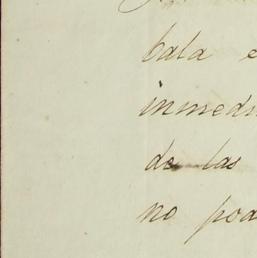 bala e
inmedi
de las
no pod